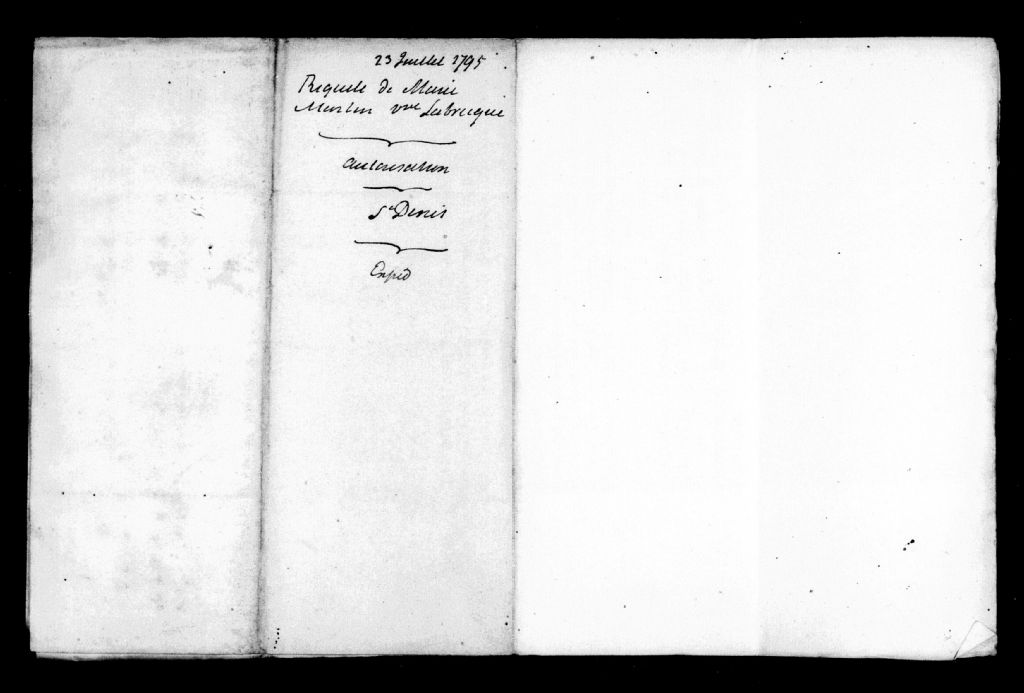 23 Juillet 1795
Requete de Marie
Martin vve Labrecque
autorisation
St Denis
Expéd